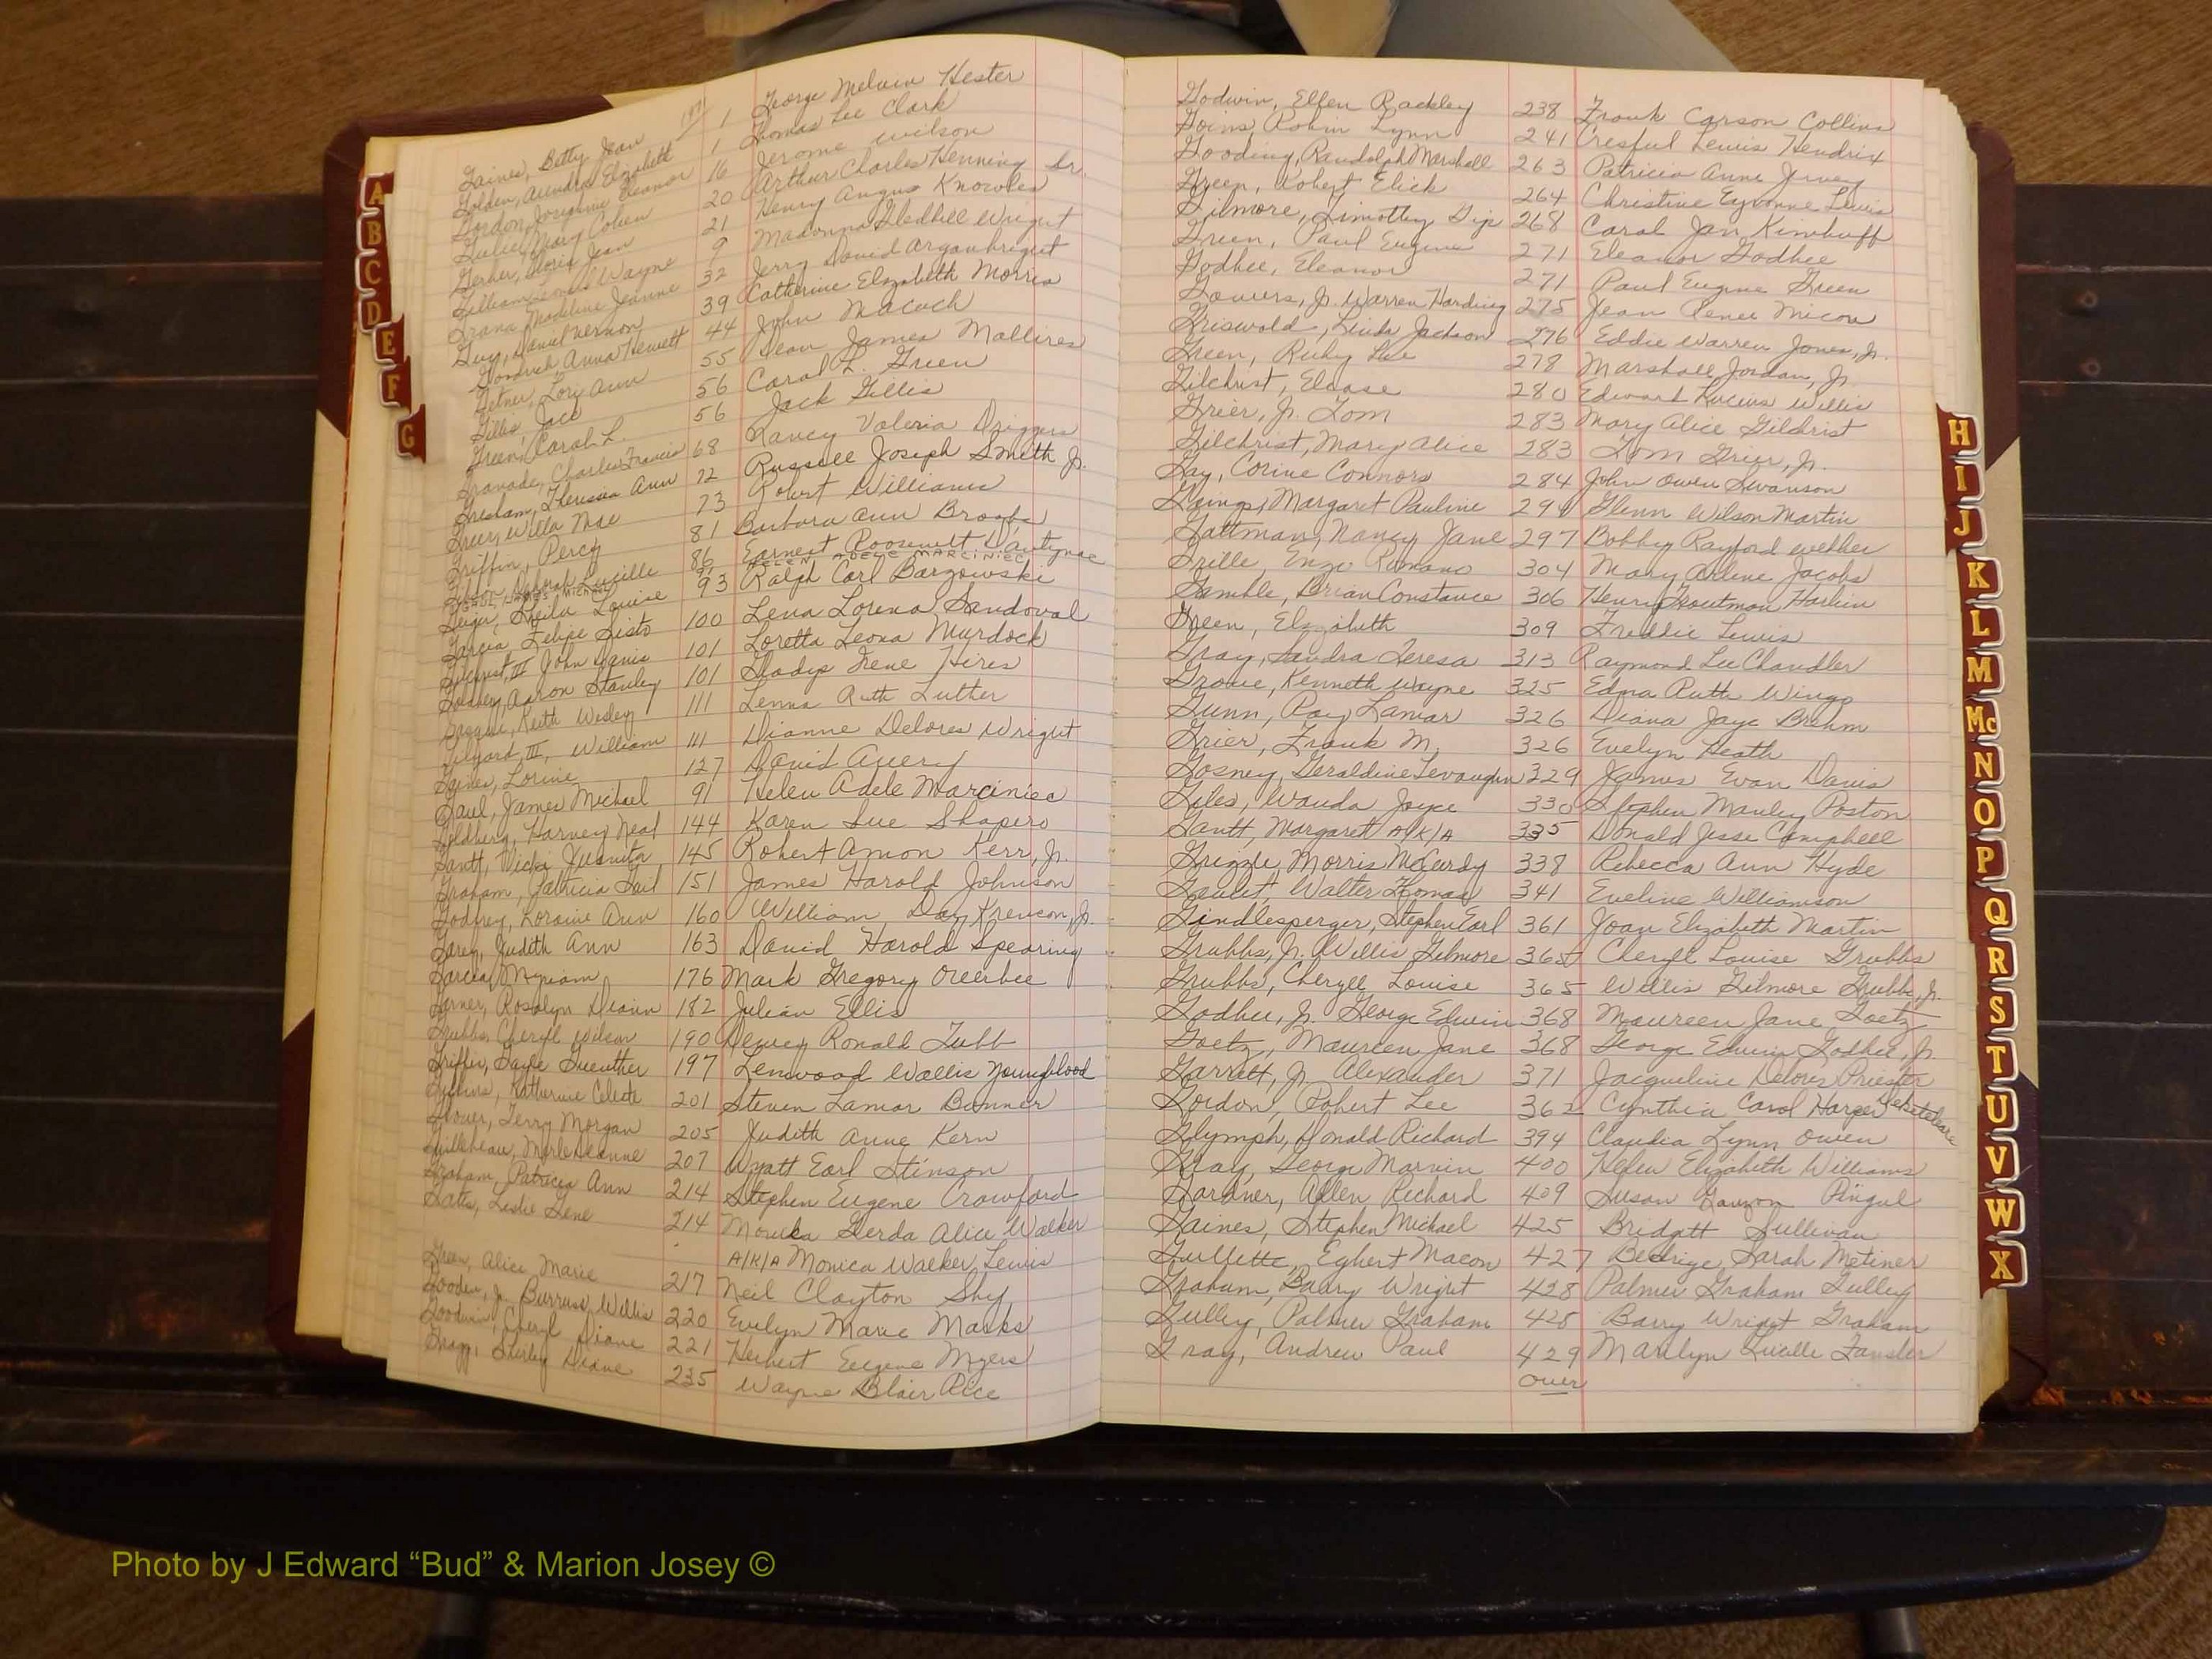 197
Gaines, Betty Jean 1 George Melvin Hester
Golden, Aundra Elizabeth 1 Thomas Lee Clark
Gordon, Josephine Eleanor 16 Jerome Wilson
Mary Cohen 20 Arthur Charles Henning Sr.
Gerher, Gloria Jean 21 Henry Angus Knowles
Gilliam, Louis Wayne 9 Madonna Gledhill Wright
Grana, Madeline Jeanne 32 Jerry David Arganbright
Guy, Daniel Vernon 39 Catherine Elizabeth Morris
Anna Hewett 44 John Macuch
Getner, Lory Ann 55 Dean James Mallires
Gillis, Jack 56 Carol L. Green
Green, Carol L. 56 Jack Gillis
Granade, Charles Francis 68 Nancy Valeria Driggers
Gresham, Theresia Ann 72 Russell Joseph Smith Jr.
Greer, Willa Mae 73 Robert Williams
Griffin, Percy 81 Barbara Ann Broofs
Deborah Lucille 86 Earnest Roosevelt
GAUL, JAMES MICHAEL 91 HELEN ADELE MARCINIEC
Geiger, Sheila Louise 93 Ralph Carl Bargowski
Garcia, Felipe Sisto 100 Lena Lorena Sandoval
Gilchrist, III John Yanis 101 Loretta Leona Murdock
Aaron Stanley 101 Gladys Irene Hires
Keith Wesley 111 Lenna Ruth Luther
Gilyard III, William 111 Dianne Delores Wright
Gaines, Lorine 127 David Avery
Gaul, James Michael 91 Helen Adele Marciniec
Goldberg, Harvey Neal 144 Karen Sue Shapiro
Gantt, Vicki Juanita 145 Robert Amon Kerr, Jr.
Graham, Patricia Gail 151 James Harold Johnson
Godfrey, Loraine Ann 160 William Day Krencon, Jr.
Garey, Judith Ann 163 David Harold Spearing
Garcia, Myriam 176 Mark Gregory Overbee
Garner, Rosalyn Deann 182 Julian Ellis
Grubbs, Cheryl Wilson 190 Dewey Ronald Tubb
Griffin, Gayle Guenther 197 Lenwood Wallis Youngblood
Katherine Celeste 201 Steven Lamar Bonner
Glover, Terry Morgan 205 Judith Anne Kern
Guillebeau, Merle Deanne 207 Wyatt Earl Stinson
Graham, Patricia Ann 214 Stephen Eugene Crawford
Gatts, Leslie Gene 214 Monika Gerda Alice Walker
A/K/A Monica Walker Lewis
Green, Alice Marie 217 Neil Clayton Shy
Gooden, Jr. Burruss Willis 220 Evelyn Marie Masks
Goodwin, Cheryl Diane 221 Herbert Eugene Myers
Gragg, Shirley Deane 235 Wayne Blair Rice
Godwin, Ellen Rackley 238 Frank Carson Collins
Goins, Robin Lynn 241 Cresful Lewis Hendrix
Gooding, Randolph Marshall 263 Patricia Anne Jivey
Green, Robert Elick 264 Christine Eyvonne Lewis
Gilmore, Timothy Digs 268 Carol Jan Kimhuff
Green, Paul Eugene 271 Eleanor Godhee
Godhee, Eleanor 271 Paul Eugene Green
Gowers, Jr. Warren Harding 275 Jean Renee Micow
Griswold, Linda Jackson 276 Eddie Warren Jones, Jr.
Green, Ruby Lee 278 Marshall Jordan, Jr.
Gilchrist, Eloase 280 Edward Lucius Willis
Grier, Jr. Tom 283 Mary Alice Gilchrist
Gilchrist, Mary Alice 283 Tom Grier, Jr.
Gay, Corine Connors 284 John Owen Swanson
Margaret Pauline 291 Glenn Wilson Martin
Gattman, Nancy Jane 297 Bobby Rayford
Grille, Enzo Romano 304 Mary Arline Jacobs
Gamble, Brian Constance 306 Henry Troutman Harkin
Green, Elizabeth 309 Freddie Lewis
Gray, Sandra Teresa 313 Raymond Lee Chandler
Grove, Kenneth Wayne 325 Edna Ruth Wingo
Gunn, Roy Lamar 326 Diana Jaye Brehm
Grier, Frank M. 326 Evelyn Heath
Gosney, Geraldine Levaughn 329 James Evan Davis
Giles, Wanda Joyce 330 Stephen Manley Poston
Gantt, Margaret A/K/A 335 Donald Jesse Campbell
Grizzle, Morris McCurdy 338 Rebecca Ann Hyde
Walter Thomas 341 Eveline Williamson
Gindlesperger, Stephen Earl 361 Joan Elizabeth Martin
Grubbs, Jr. Willis Gilmore 365 Cheryll Louise Grubbs
Grubbs, Cheryll Louise 365 Willis Gilmore Grubbs, Jr.
Godhee, Jr. George Edwin 368 Maureen Jane Goetz
Goetz, Maureen Jane 368 George Edwin Godhee, Jr.
Garrett, Jr. Alexander 371 Jacqueline Delores Priester
Gordon, Robert Lee 362 Cynthia Carol Harper
Glymph, Donald Richard 394 Claudia Lynn Owen
Gray, George Marvin 400 Helen Elizabeth Williams
Gardner, Allen Richard 409 Susan Pingul
Gaines, Stephen Michael 425 Bridgett Sullivan
Gullette, Egbert Macon 427 Sarah Metiner
Graham, Barry Wright 428 Palmer Graham Gulley
Gulley, Palmer Graham 428 Barry Wright Graham
Gray, Andrew Paul 429 Marilyn Lucille Fansler
Over
A
B
C
D
E
F
G
H
I
J
K
L
M
Mc
N
O
P
Q
R
S
T
U
V
W
X
Photo by J Edward “Bud” & Marion Josey ©